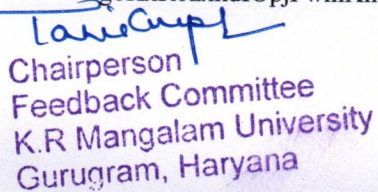 Chairperson
Feedback Committee
K.R Mangalam University
Gurugram, Haryana